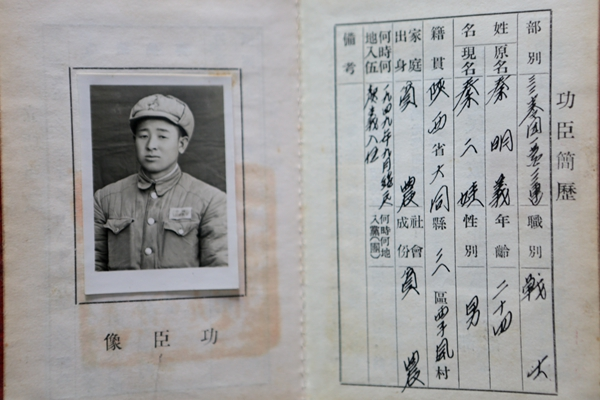 功臣簡歷
部別 職別 戰士
姓名 原名 秦明義 年齡 二十四
現名 秦二娃 性別 男
籍貫 陝西省大同縣八區 村
家庭出身 貧農 社會成份 貧農
何時何地入伍 一九四九年九月綏遠起義入伍 何時何地入黨(團)
備考
功臣像